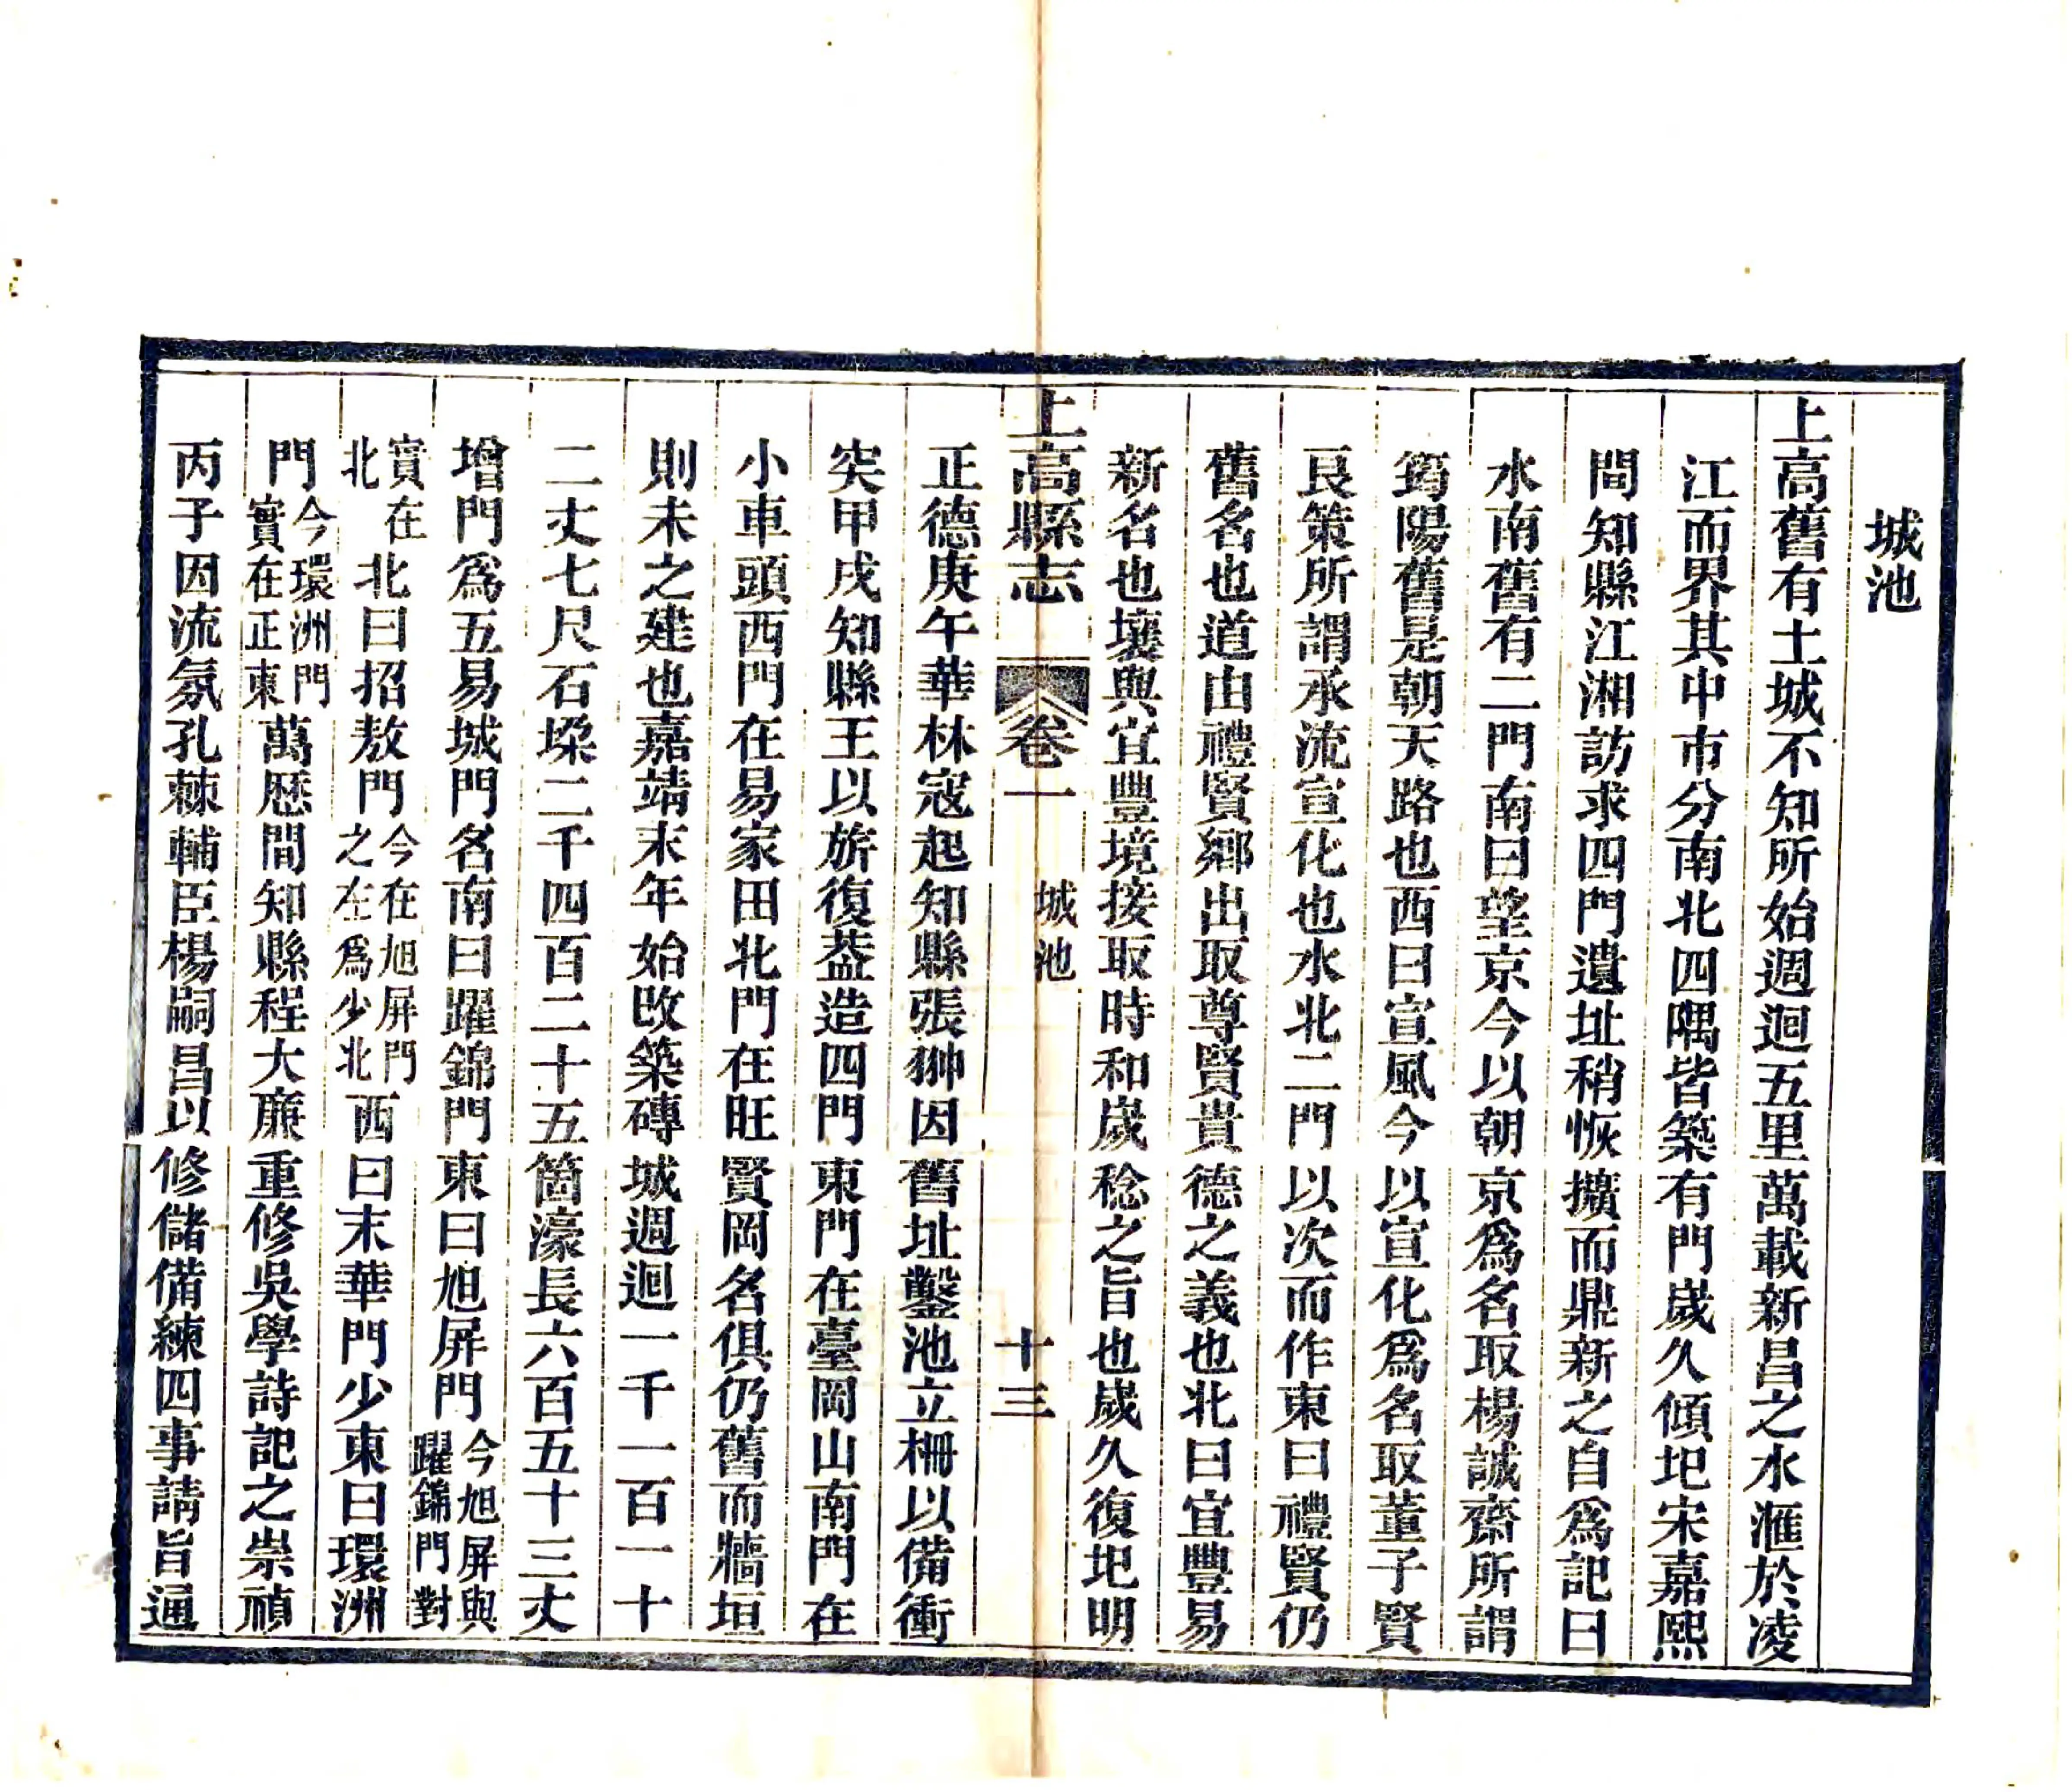 城池
上高舊有土城不知所始週迴五里萬載新昌之水滙於凌
江而界其中市分南北四隅皆築有門歲久傾圯宋嘉熙
間知縣江湘訪求四門遺址稍恢擴而鼎新之自爲記曰
水南舊有二門南曰望京今以朝京爲名取楊誠齋所謂
筠陽舊是朝天路也西曰宣風今以宣化爲名取董子賢
艮策所謂承流宣化也水北二門以次而作東曰禮賢仍
舊名也道由禮賢鄉出取尊賢貴德之義也北曰宜豐易
新名也壤與宜豐境接取時和歲稔之旨也歲久復圯明
上高縣志 卷一 城池 十三
正德庚午華林寇起知縣張獅因舊址鑿池立柵以備衝
突甲戌知縣王以旂復葢造四門東門在臺岡山南門在
小車頭西門在易家田北門在旺賢岡名俱仍舊而牆垣
則未之建也嘉靖末年始改築磚城週迴一千一百一十
二丈七尺石垜二千四百二十五箇濠長六百五十三丈
增門爲五易城門名南曰躍錦門東曰旭屏門今旭屏與躍錦門對
實在北北曰招敖門今在旭屏門之左爲少北西曰末華門少東曰環洲
門今環洲門實在正東萬歷間知縣程大廉重修吳學詩記之崇禎
丙子因流氛孔棘輔臣楊嗣昌以修儲備練四事請旨通